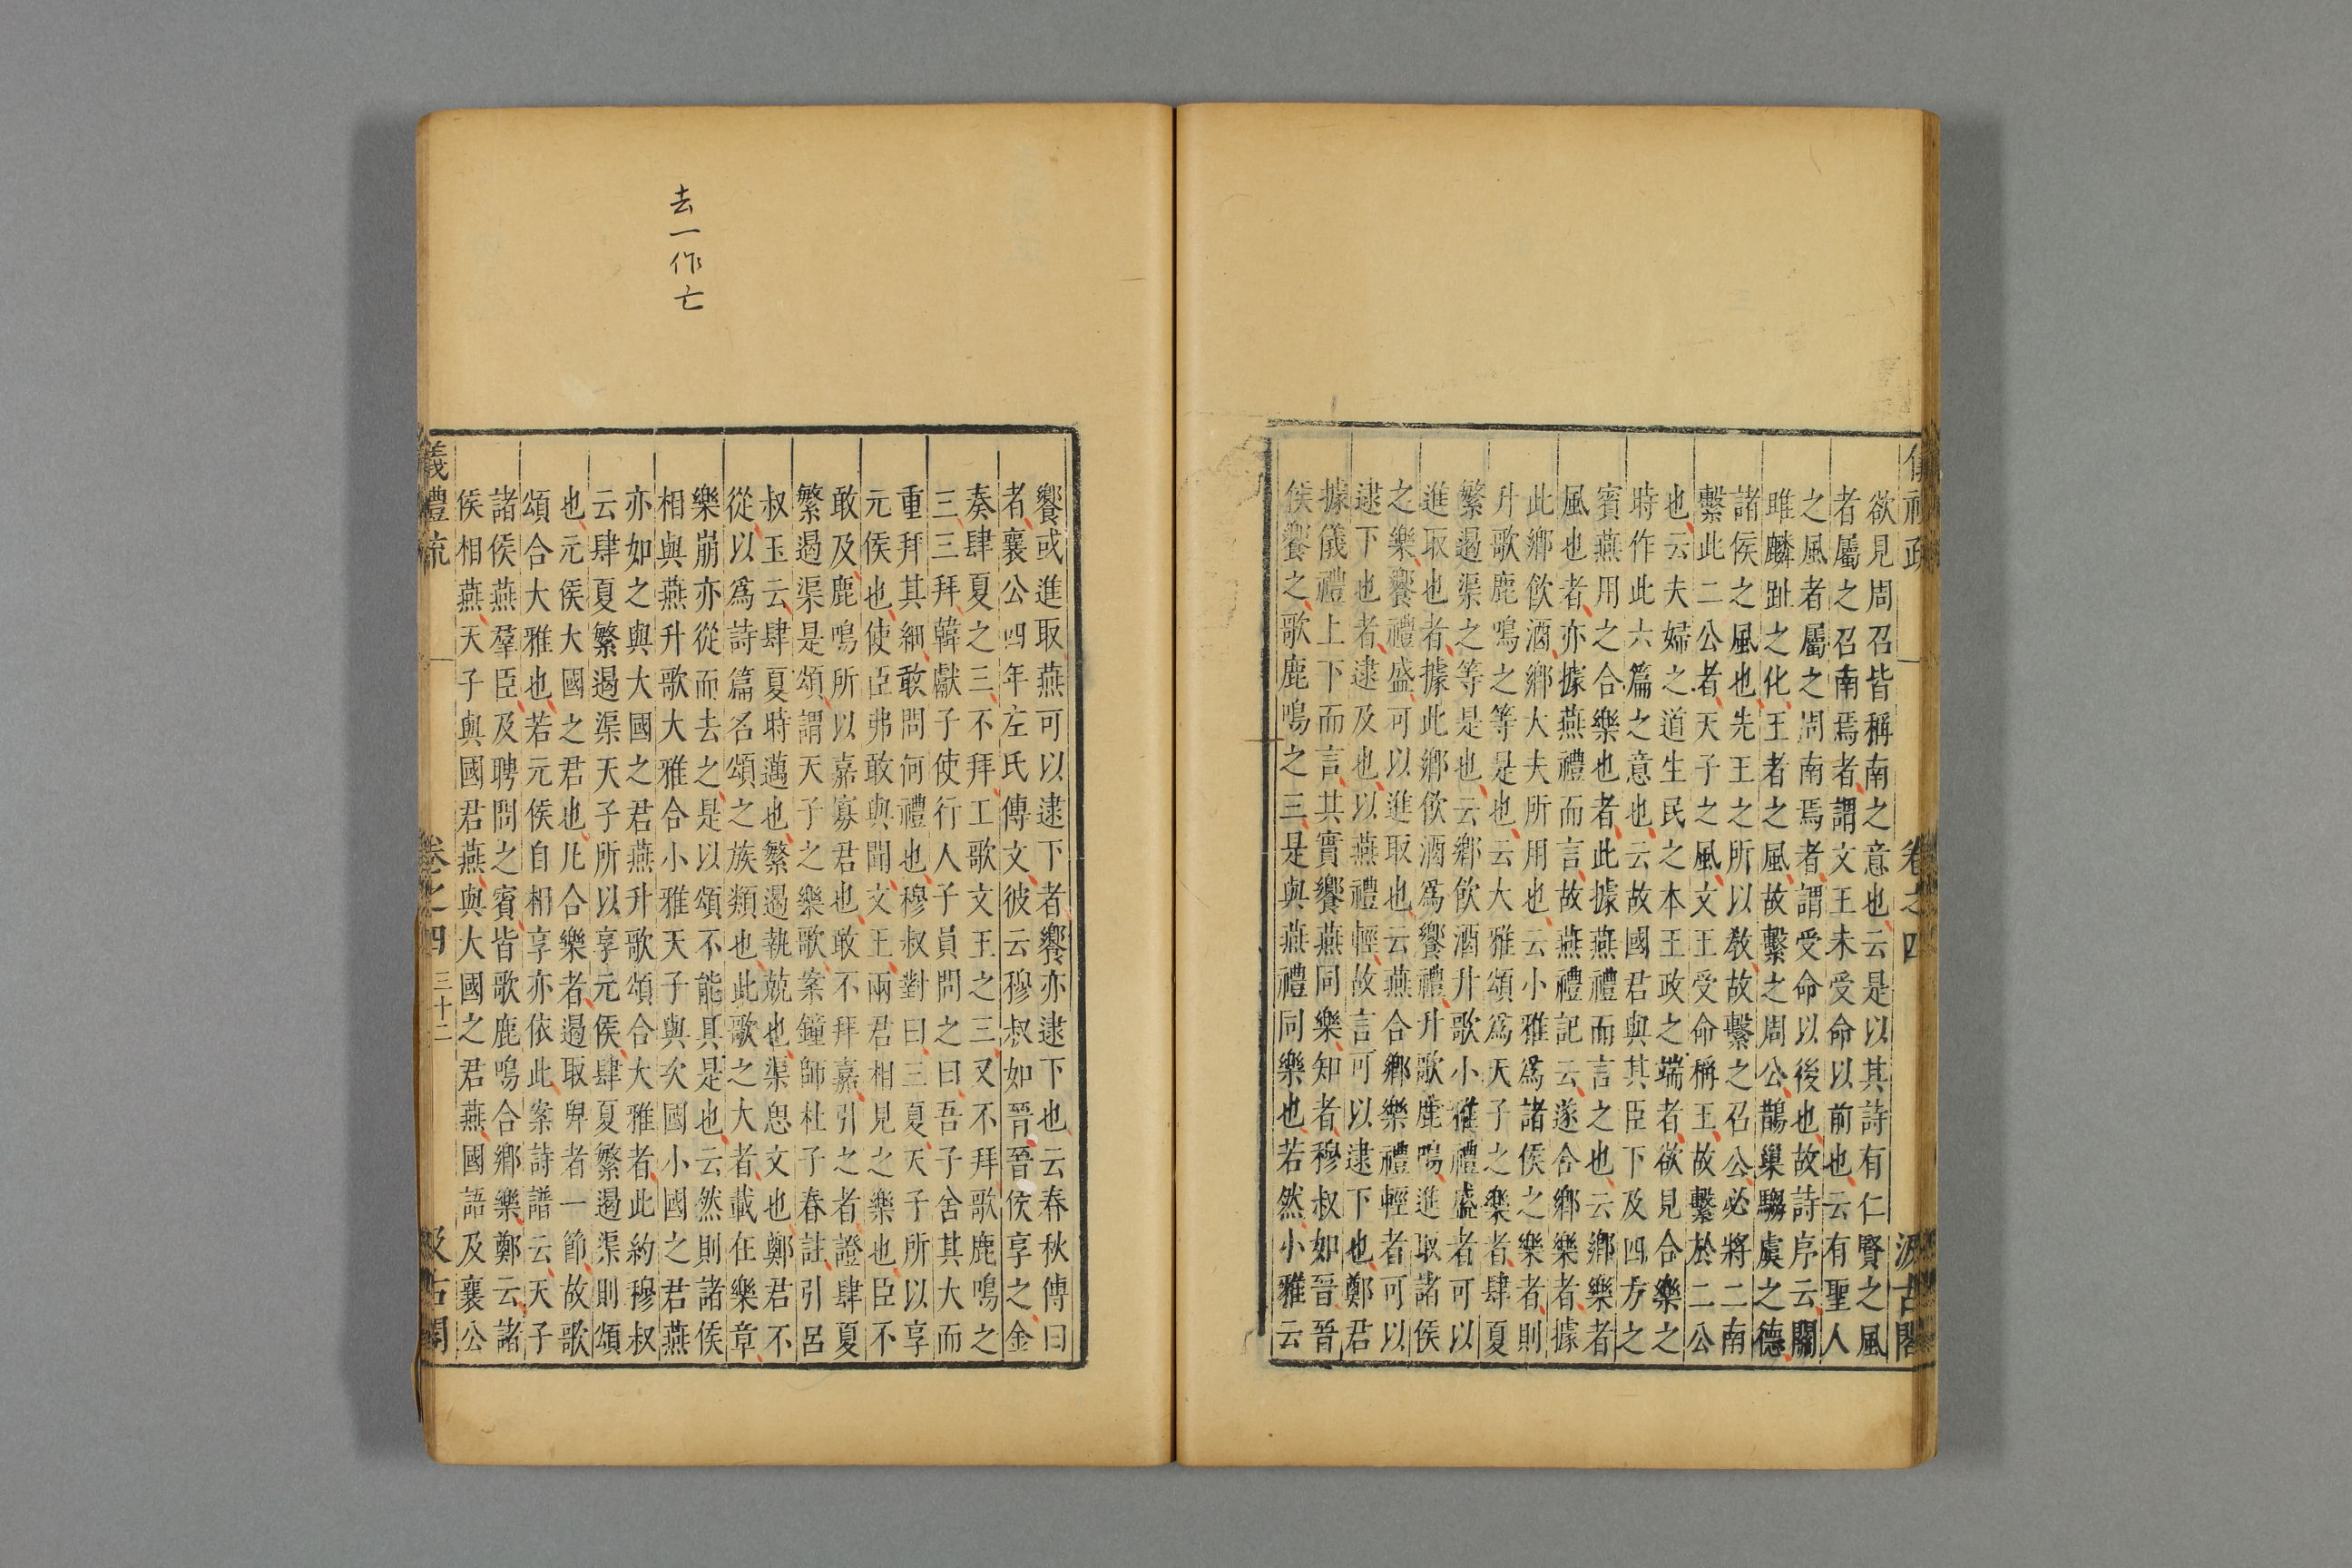 欲見周召皆稱南之意也云是以其詩有仁賢之風
者屬之召南焉者謂文王未受命以前也云有聖人
之風者屬之周南焉者謂受命以後也故詩序云關
雎麟趾之化王者之風故繫之周公鵲巢騶虞之德
諸侯之風也先王之所以敎故繫之召公必將二南
繫此二公者天子之風文王受命稱王故繫於二公
也云夫婦之道生民之本王政之端者欲見合樂之
時作此六篇之意也云故國君與其臣下及四方之
賓燕用之合樂也者此據燕禮而言之也云鄉樂者
風也者亦據燕禮而言故燕禮記云遂合鄉樂者據
此鄉飲酒鄉大夫所用也云小雅爲諸侯之樂者則
升歌鹿鳴之等是也云大雅頌爲天子之樂者肆夏
繁遏渠之等是也云鄉飲酒升歌小雅禮盛者可以
進取也者據此鄉飲酒爲饗禮升歌鹿鳴進取諸侯
之樂饗禮盛可以進取也云燕合鄉樂禮輕者可以
逮下也者逮及也以燕禮輕故言可以逮下也鄭君
據儀禮上下而言其實饗燕同樂知者穆叔如晉晉
侯饗之歌鹿鳴之三是與燕禮同樂也若然小雅云
卷之四
汲古閣
饗或進取燕可以逮下者饗亦逮下也云春秋傳曰
者襄公四年左氏傳文彼云穆叔如晉晉侯享之金
奏肆夏之三不拜工歌文王之三又不拜歌鹿鳴之
三三拜韓獻子使行人子員問之曰吾子舍其大而
重拜其細敢問何禮也穆叔對曰三夏天子所以享
元侯也使臣弗敢與聞文王兩君相見之樂也臣不
敢及鹿鳴所以嘉寡君也敢不拜嘉引之者證肆夏
繁遏渠是頌謂天子之樂歌案鐘師杜子春註引呂
叔玉云肆夏時邁也繁遏執兢也渠思文也鄭君不
從以爲詩篇名頌之族類也此歌之大者載在樂章
樂崩亦從而去之是以頌不能具是也云然則諸侯
相與燕升歌大雅合小雅天子與次國小國之君燕
亦如之與大國之君燕升歌頌合大雅者此約穆叔
云肆夏繁遏渠天子所以享元侯肆夏繁遏渠則頌
也元侯大國之君也凡合樂者遏取卑者一節故歌
頌合大雅也若元侯自相享亦依此案詩譜云天子
諸侯燕羣臣及聘問之賓皆歌鹿鳴合鄉樂鄭云諸
侯相燕天子與國君燕與大國之君燕國語及襄公
儀禮疏
卷之四
三十二
去一作亡